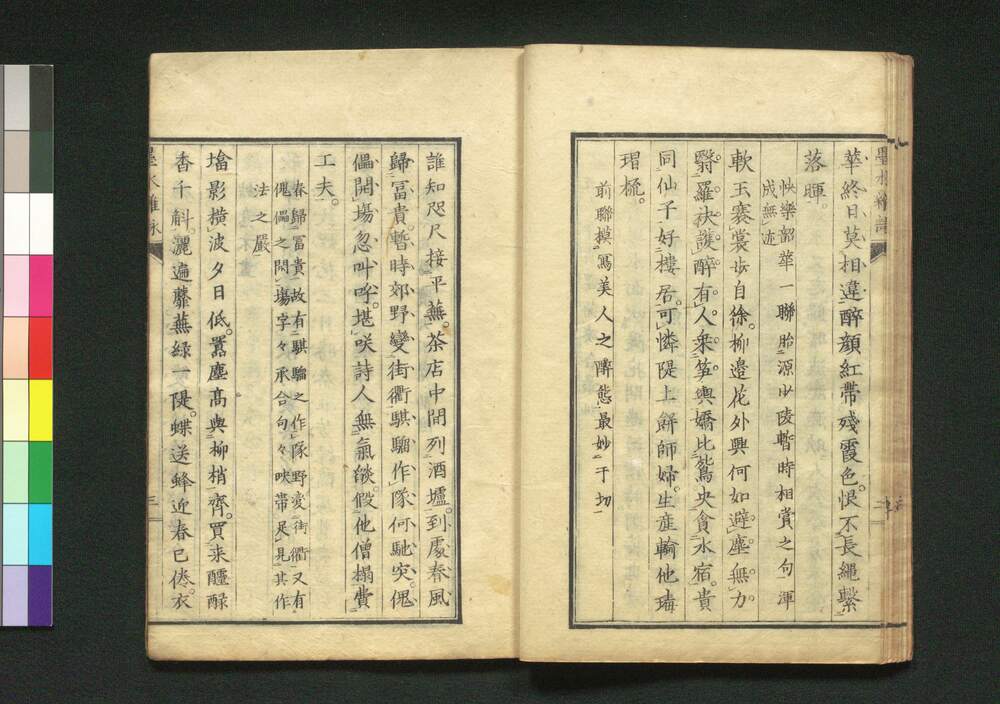 華終日莫相違醉顏紅帶殘霞色恨不長繩繫
落暉
快樂韶華一聯胎源少陵暫時相賞之句渾
成無迹
軟玉褰裳步自徐柳邉花外興何如避塵無力
翳羅袂護醉有人乘笋輿嬌比鴛央貪水宿貴
同仙子好樓居可憐隄上餅師婦生産輸他瑇
瑁梳
前聯摸寫美人之醉態最妙于切
誰知咫尺接平蕪茶店中間列酒壚到處春風
歸冨貴暫時郊野變街衢騏驑作隊何馳突傀
儡開場忽叫呼堪咲詩人無氣燄假他僧榻費
工夫
春歸冨貴故有騏驑之作隊野変街衢又有
傀儡之開場字々承合句々映帯足見其作
法之嚴
墖影横波夕日低嚣塵髙與柳梢齊買来醽醁
香千斛灑遍蘼蕪緑一隄蝶送蜂近春已倦衣
墨水雜咏
三